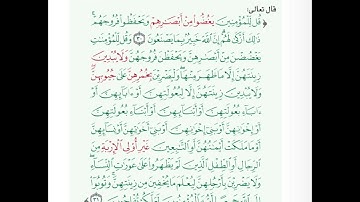 قال تعالى:
﴿ قُل لِّلْمُؤْمِنِينَ يَغُضُّوا۟ مِنْ أَبْصَـٰرِهِمْ وَيَحْفَظُوا۟ فُرُوجَهُمْ ۚ
ذَٰلِكَ أَزْكَىٰ لَهُمْ ۗ إِنَّ ٱللَّهَ خَبِيرٌۢ بِمَا يَصْنَعُونَ ٣٠ وَقُل لِّلْمُؤْمِنَـٰتِ
يَغْضُضْنَ مِنْ أَبْصَـٰرِهِنَّ وَيَحْفَظْنَ فُرُوجَهُنَّ وَلَا يُبْدِينَ
زِينَتَهُنَّ إِلَّا مَا ظَهَرَ مِنْهَا ۖ وَلْيَضْرِبْنَ بِخُمُرِهِنَّ عَلَىٰ جُيُوبِهِنَّ ۖ
وَلَا يُبْدِينَ زِينَتَهُنَّ إِلَّا لِبُعُولَتِهِنَّ أَوْ ءَابَآئِهِنَّ أَوْ
ءَابَآءِ بُعُولَتِهِنَّ أَوْ أَبْنَآئِهِنَّ أَوْ أَبْنَآءِ بُعُولَتِهِنَّ
أَوْ إِخْوَٰنِهِنَّ أَوْ بَنِىٓ إِخْوَٰنِهِنَّ أَوْ بَنِىٓ أَخَوَٰتِهِنَّ أَوْ نِسَآئِهِنَّ
أَوْ مَا مَلَكَتْ أَيْمَـٰنُهُنَّ أَوِ ٱلتَّـٰبِعِينَ غَيْرِ أُو۟لِى ٱلْإِرْبَةِ مِنَ
ٱلرِّجَالِ أَوِ ٱلطِّفْلِ ٱلَّذِينَ لَمْ يَظْهَرُوا۟ عَلَىٰ عَوْرَٰتِ ٱلنِّسَآءِ ۖ
وَلَا يَضْرِبْنَ بِأَرْجُلِهِنَّ لِيُعْلَمَ مَا يُخْفِينَ مِن زِينَتِهِنَّ ۚ وَتُوبُوٓا۟
إِلَى ٱللَّهِ جَمِيعًا أَيُّهَ ٱلْمُؤْمِنُونَ لَعَلَّكُمْ تُفْلِحُونَ ٣١ ﴾